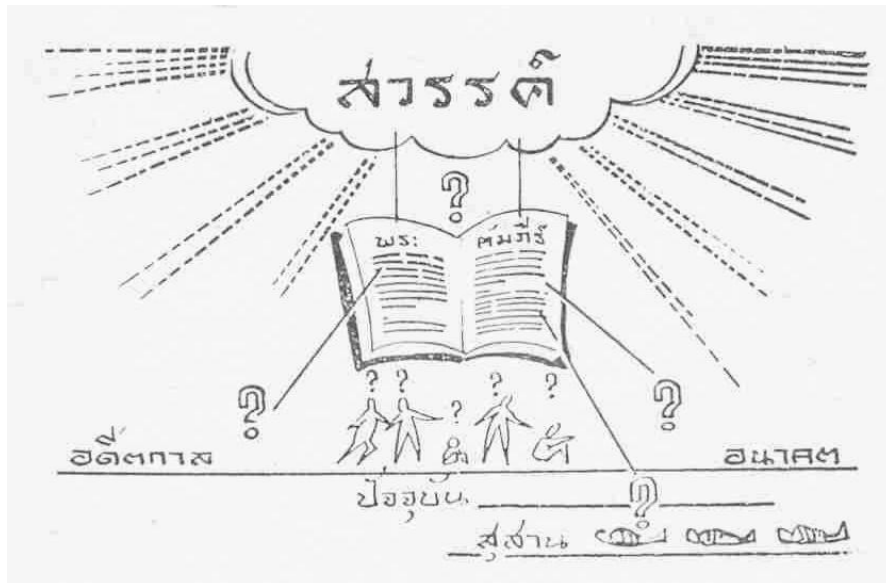 สวรรค์
?
พระ คัมภีร์
? ? ? ? ?
? ?
อดีตกาล อนาคต
ปัจจุบัน ?
สุสาน